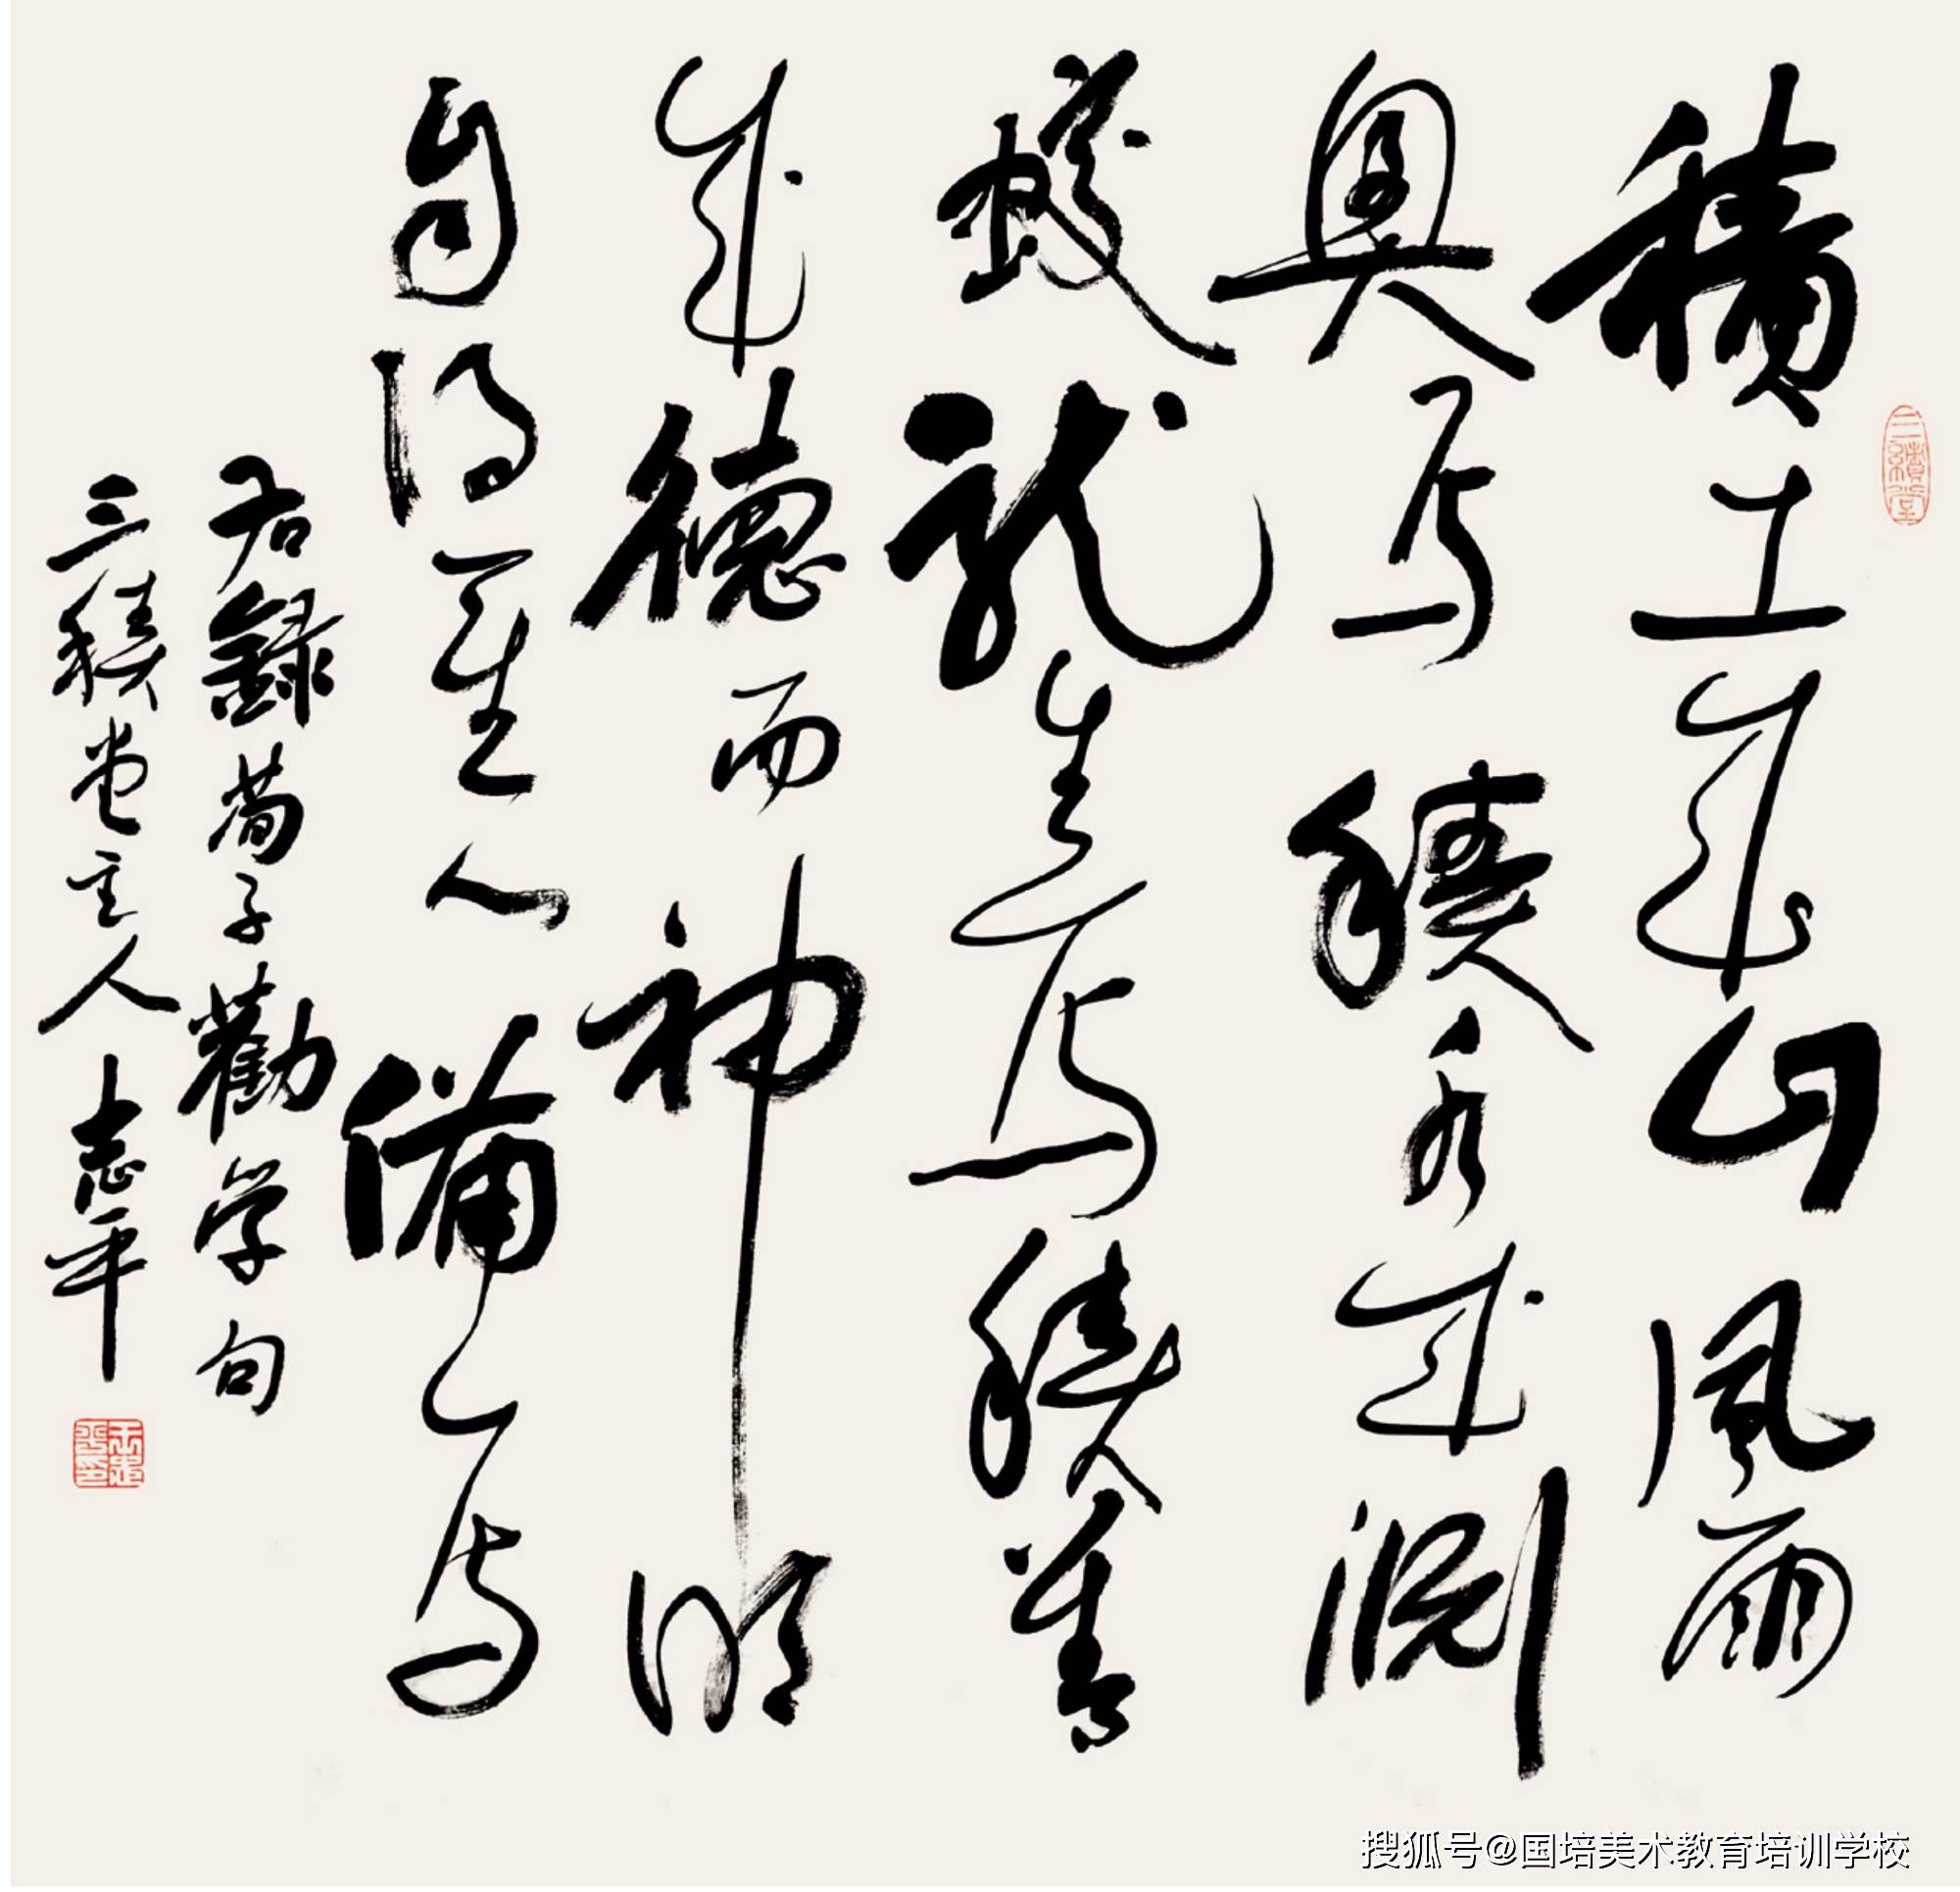 三積堂
積土成山風雨
興焉積水成淵
蛟龍生焉積善
成德而神明
自得聖心備焉
右錄荀子勸学句
三積堂主人志平
王志平印
搜狐号@国培美术教育培训学校